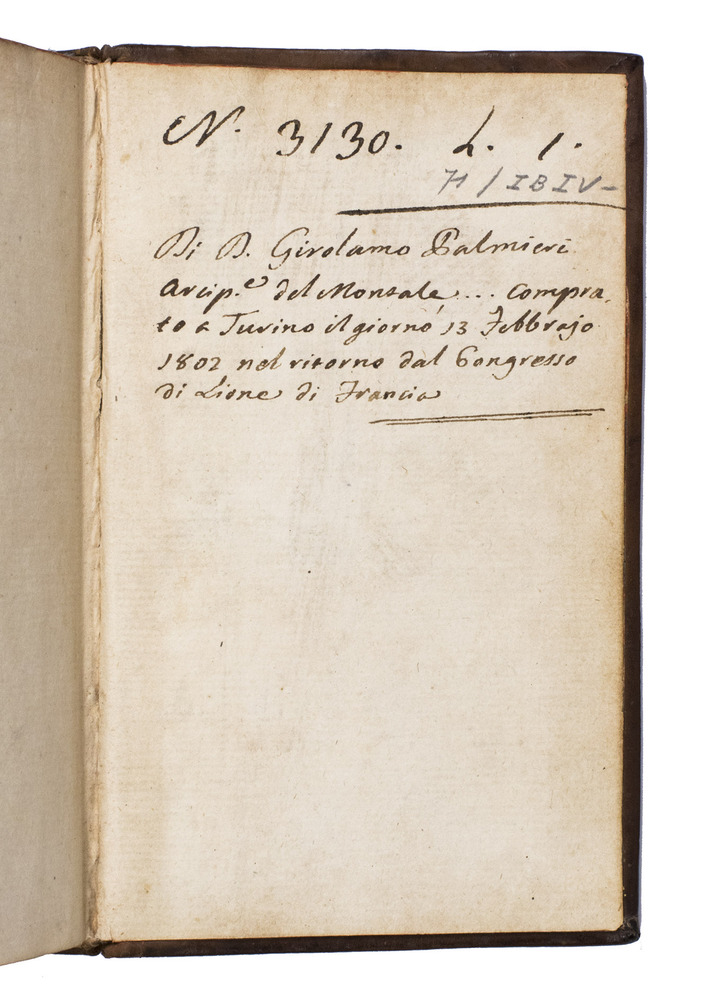 N. 3130. L. 1.
71 / IBIV-
Di D. Girolamo Palmieri
Arcip.e del Montale ... Compra,
to a Turino il giorno 13 Febbrajo
1802 nel ritorno dal Congresso
di Lione di Francia